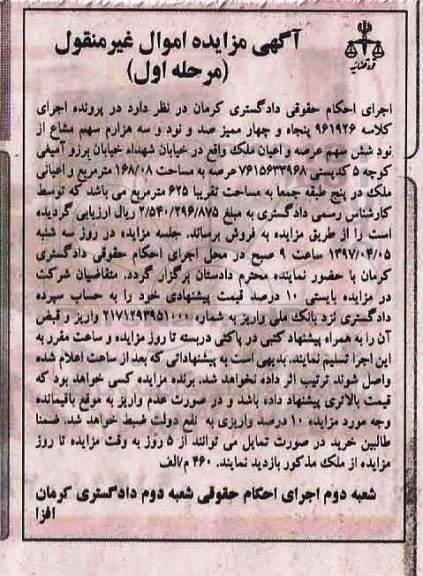 آگهی مزایده اموال غیرمنقول
(مرحله اول)
قوه قضائیه
اجرای احکام حقوقی دادگستری کرمان در نظر دارد در پرونده اجرای
کلاسه ۹۶۱۹۲۶ پنجاه و چهار ممیز صد و نود و سه هزارم سهم مشاع از
نود شش سهم عرصه و اعیان ملک واقع در خیابان شهداء خیابان برزو آمیغی
کوچه ۵ کدپستی ۷۶۱۵۶۳۳۹۶۸ عرصه به مساحت ۱۶۸/۰۸ مترمربع و اعیانی
ملک در پنج طبقه جمعا به مساحت تقریبا ۶۲۵ مترمربع می باشد که توسط
کارشناس رسمی دادگستری به مبلغ ۲/۵۴۰/۲۹۶/۸۷۵ ریال ارزیابی گردیده
است را از طریق مزایده به فروش برساند. جلسه مزایده در روز سه شنبه
۱۳۹۷/۰۴/۰۵ ساعت ۹ صبح در محل اجرای احکام حقوقی دادگستری
کرمان با حضور نماینده محترم دادستان برگزار گردد. متقاضیان شرکت
در مزایده بایستی ۱۰ درصد قیمت پیشنهادی خود را به حساب سپرده
دادگستری نزد بانک ملی واریز به شماره ۲۱۷۱۲۹۳۹۵۱۰۰۰ واریز و قبض
آن را به همراه پیشنهاد کتبی در پاکتی دربسته تا روز مزایده و ساعت مقرر به
این اجرا تسلیم نمایند. بدیهی است به پیشنهاداتی که بعد از ساعت اعلام شده
واصل شوند ترتیب اثر داده نخواهد شد. برنده مزایده کسی خواهد بود که
قیمت بالاتری پیشنهاد داده باشد و در صورت عدم واریز به موقع باقیمانده
وجه مورد مزایده ۱۰ درصد واریزی به نفع دولت ضبط خواهد شد. ضمنا
طالبین خرید در صورت تمایل می توانند از ۵ روز به وقت مزایده تا روز
مزایده از ملک مذکور بازدید نمایند. ۴۶۰ م/الف
شعبه دوم اجرای احکام حقوقی شعبه دوم دادگستری کرمان
افزا